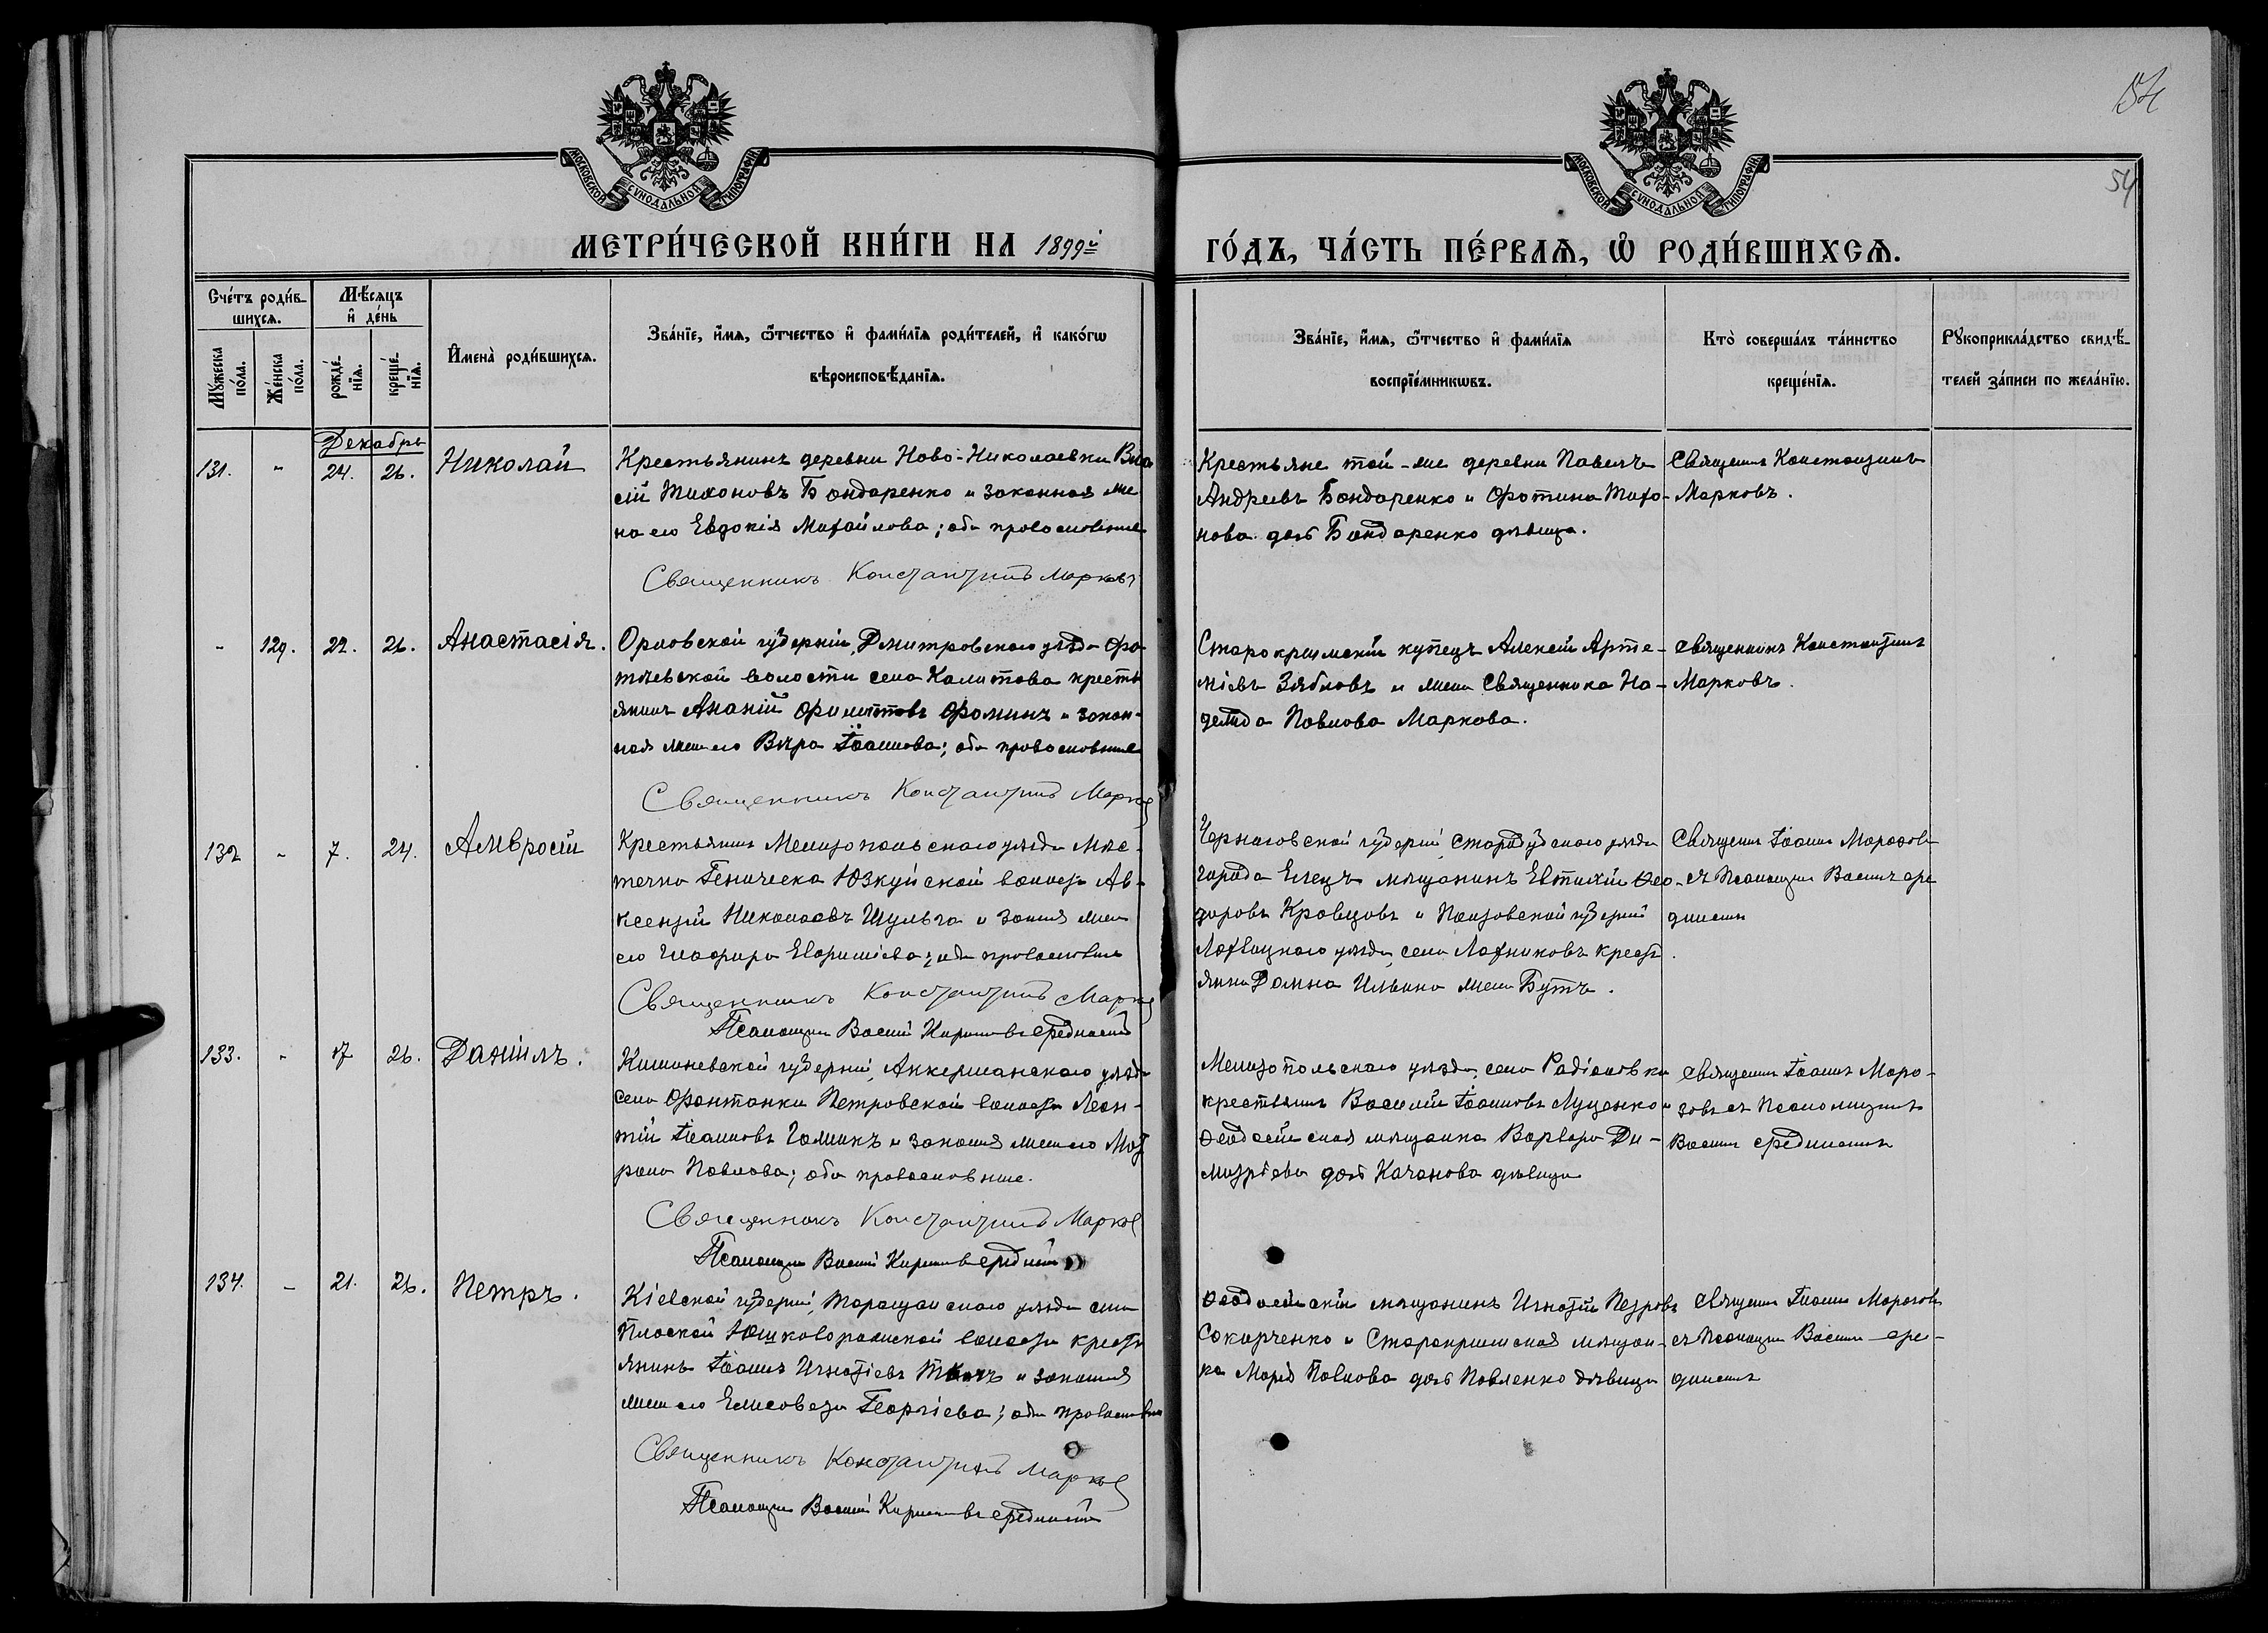 МОСКОВСКОЙ СѴНОДАЛЬНОЙ ТИПОГРАФІИ
МОСКОВСКОЙ СѴНОДАЛЬНОЙ ТИПОГРАФІИ
54
МЕТРИ́ЧЕСКОЙ КНИ́ГИ НА 1899й ГО́ДЪ, ЧА́СТЬ ПЕ́РВАѦ, Ѡ҆ РОДИ́ВШИХСѦ.
Сче́тъ роди́в-
шихсѧ.
Мѣ́сѧцъ
и҆ де́нь
Мꙋ́жеска по́ла.
Же́нска по́ла.
рожде́-
нїѧ.
креще́-
нїѧ.
И҆мена̀ роди́вшихсѧ.
Зва́нїе, и҆́мѧ, ѻ҆́тчество и҆ фами́лїѧ роди́телей, и҆ како́гѡ
вѣроисповѣ́данїѧ.
Зва́нїе, и҆́мѧ, ѻ҆́тчество и҆ фами́лїѧ
воспрїе́мникѡвъ.
Кто̀ соверша́лъ та́инство
креще́нїѧ.
Рꙋкоприкла́дство свидѣ́-
телей за́писи по жела́нїю.
Декабрь
131. " 24. 26. Николай
Крестьянинъ деревни Ново-Николаевки Вла
сій Тихоновъ Бондаренко и законная же
на его Евдокія Михайлова; оба православные
Священникъ Константинъ Марковъ
Крестьяне той-же деревни Павелъ
Андреевъ Бондаренко и Фотина Тихо-
нова дочь Бондаренко дѣвица.
Священ. Константинъ
Марковъ.
- 129. 22. 26. Анастасія.
Орловской губерніи, Дмитровскаго уѣзда
волости села Калитова кресть
янинъ Ананій Филиповъ Фоминъ и закон-
ная жена его Вѣра Іоаннова; оба православные
Священникъ Константинъ Марковъ
Старокрымскій купецъ Алексій Арте-
міевъ Зябловъ и жена Священника На-
дежда Павлова Маркова.
Священникъ Константинъ
Марковъ.
132 - 7. 24. Амвросій
Крестьянинъ Мелитопольскаго уѣзда мѣс-
течка Геническа Юзкуйской волости Ав-
ксентій Николаевъ Шульга и закон. жена
его Глафира; оба православные
Священникъ Константинъ Марковъ
Псаломщикъ Василій Кириловъ Срединскій
Черниговской губерніи, Стародубскаго уѣзда
города Елецъ мѣщанинъ Евтихій Ѳео-
доровъ Кравцовъ и Полтавской губерніи
Лохвицкаго уѣзда, села Лохниковъ кресть
янка Домна Ильина жена Бутъ.
Священ. Іоаннъ Морозовъ
съ Псаломщик. Васил. Сре
динск.
133. - 17 26. Даніилъ.
Кишиневской губерніи, Аккерманскаго уѣзда
села Фонтанки Петровской волости Леон-
тій Іоанновъ Галинкъ и законная жена его Мат
рона Павлова; оба православные.
Священникъ Константинъ Марковъ
Псаломщикъ Василій Кириловъ Срединскій
Мелитопольскаго уѣзда, села Радіоновки
крестьянинъ Василій Іоанновъ Луценко и
Ѳеодосійская мѣщанка Варвара Ди-
митріева дочь Качанова дѣвица
Священ. Іоаннъ Моро-
зовъ съ Псаломщик.
Васил. Срединск.
134. - 21. 26. Петръ.
Кіевской губерніи, Таращанскаго уѣзда села
Плоской волости кресть
янинъ Іоаннъ Игнатіевъ Ткачъ и законная
жена его Елисавета Георгіева; оба православные
Священникъ Константинъ Марковъ
Псаломщикъ Василій Кириловъ Срединскій
Ѳеодосійскій мѣщанинъ Игнатій Петровъ
Сокирченко и Старокрымская мѣщан-
ка Марія Павлова дочь Павленко дѣвица
Священ. Іоаннъ Морозовъ
съ Псаломщик. Васил. Сре-
динск.